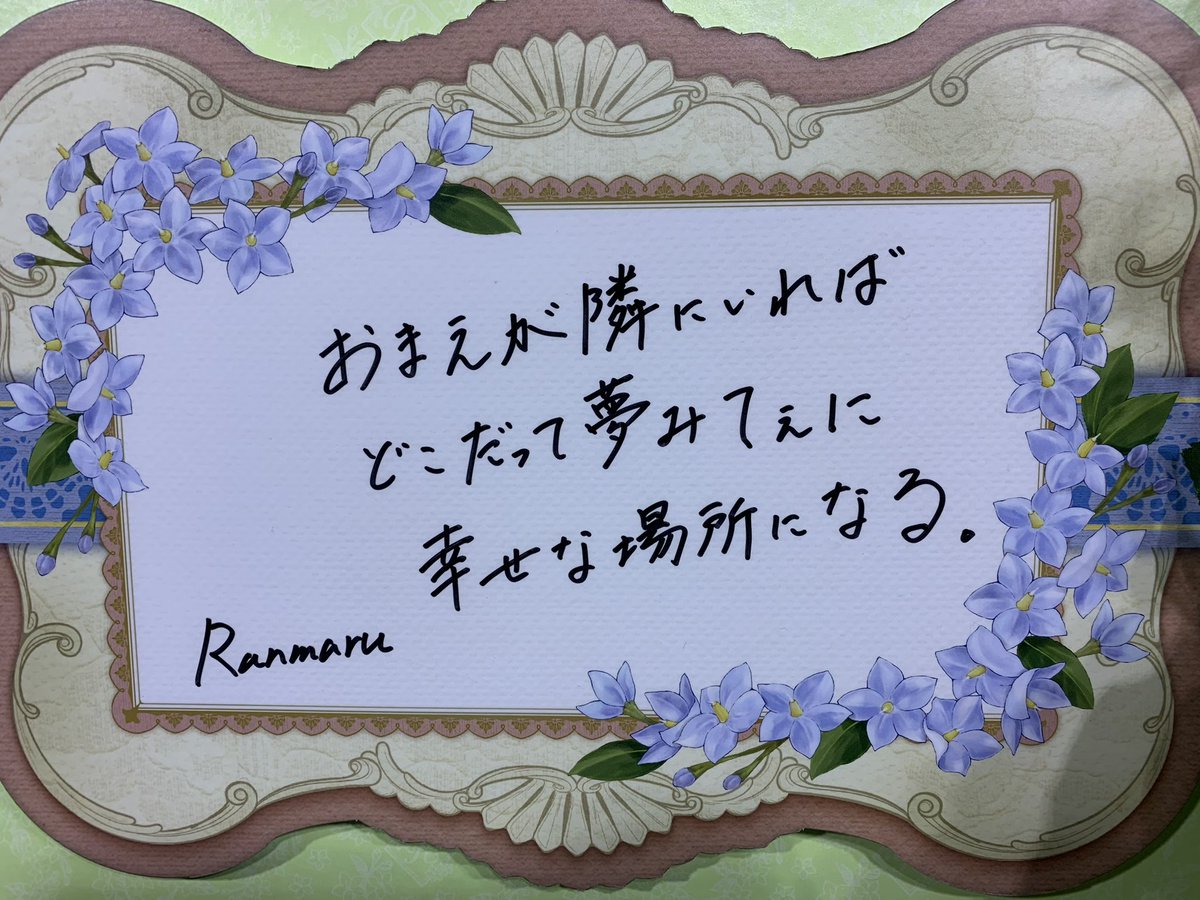 おまえが隣にいれば
どこだって夢みてぇに
幸せな場所になる。
Ranmaru